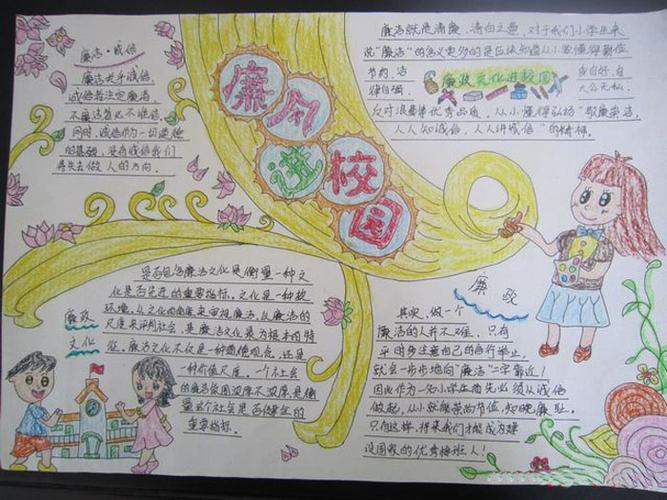 廉洁·诚信
廉洁关乎诚信,
诚信者注定廉洁,
不廉洁者必不诚信。
同时,诚信作为一切道德
的基础,是否诚信我们
将失去做人的方向。
廉
今
进
校
园
廉洁就是清廉、清白之意,对于我们小学生来
说"廉洁"的含义更多的是应该知道从小要懂得勤俭
节约、洁身自好、自
律自强、大公无私。
廉政文化进校园
反对浪费等优秀品质,从小懂得弘扬"敬廉崇洁,
人人知诚信,人人讲诚信"的精神。
廉政
文化
是否具备廉洁文化是衡量一种文
化是否先进的重要指标。文化是一种软
环境,从文化的角度来审视廉洁,从廉洁的
尺度来评判社会,是廉洁文化最为根本的特
征。廉洁文化不仅是一种道德观念,还是
一种价值尺度。一个社会
的廉洁氛围浓厚不浓厚,是衡
量这个社会是否健康的
重要指标。
廉政
其实,做一个
廉洁的人并不难。只有
平时多注意自己的言行举止,
就会一步步地向"廉洁"二字靠近!
因此作为一名小学生首先必须从诚信
做起,从小就能崇尚节俭,知晓廉耻。
只有这样,将来我们才能成为建
设国家的优秀接班人!